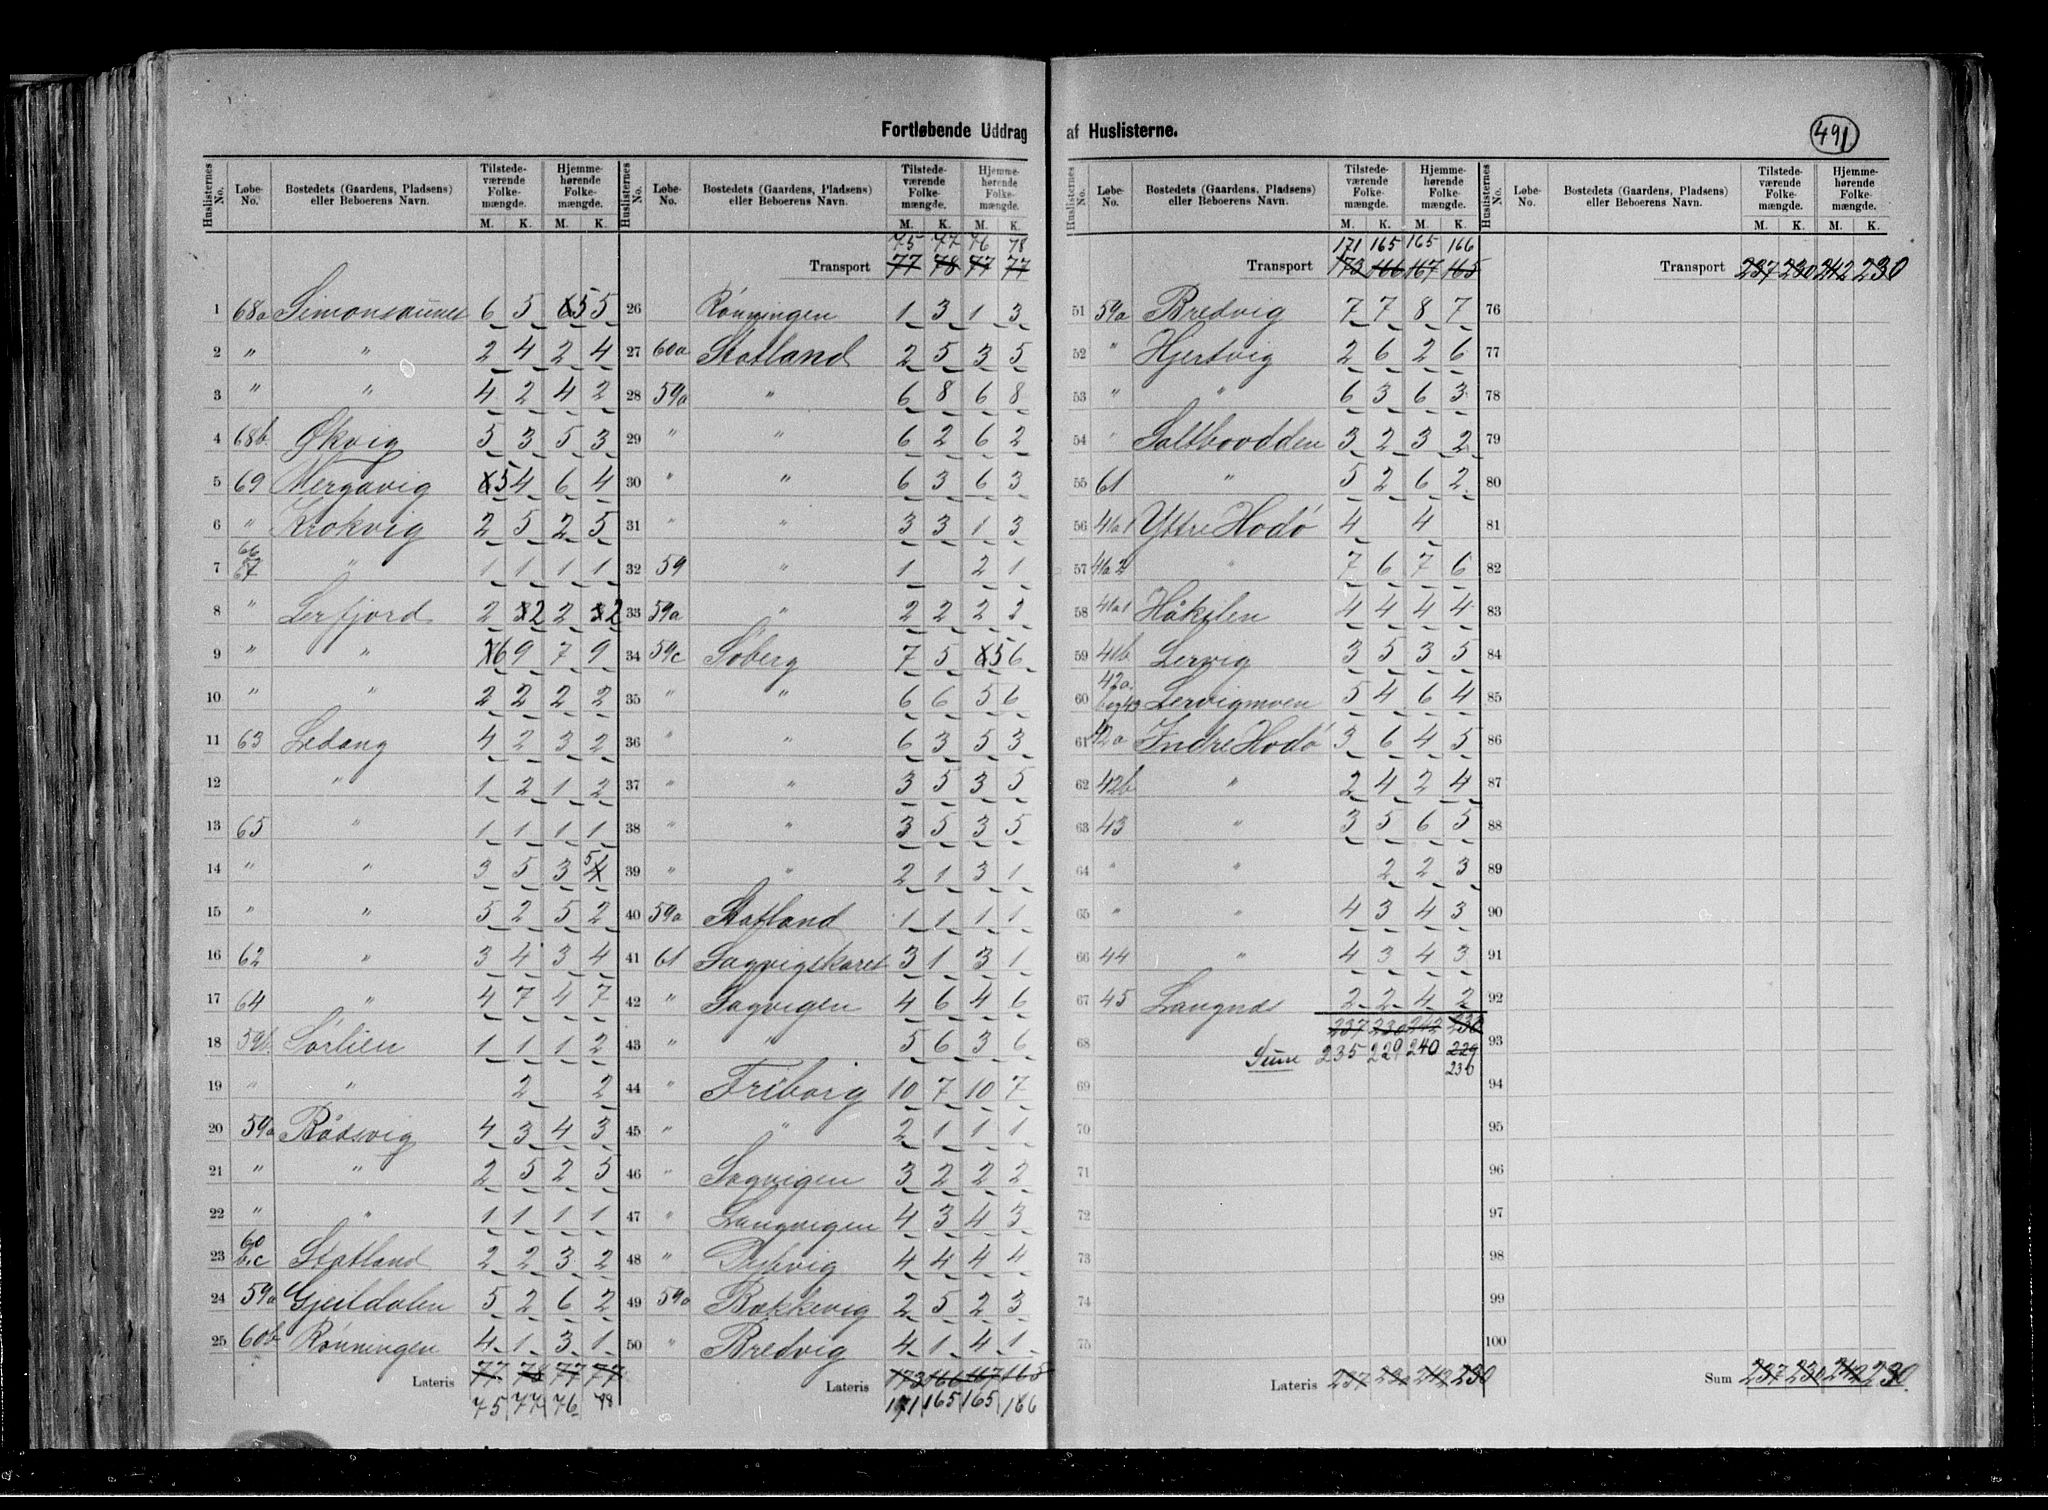 Fortløbende Uddrag af Huslisterne.
491
Huslisternes No. Løbe-No. Bostedets (Gaardens, Pladsens) eller Beboerens Navn. Tilstedeværende Folkemængde. M. K. Hjemmehørende Folkemængde. M. K.
1 68a Simonsaunet 6 5 5 5
2 " " 2 4 2 4
3 " " 4 2 4 2
4 68b Økvig 5 3 5 3
5 69 Mergavig 5 4 6 4
6 " Krokvig 2 5 2 5
7 66 67 " 1 1 1 1
8 " Lerfjord 2 2 2 2
9 " " 6 9 7 9
10 " " 2 2 2 2
11 63 Ledang 4 2 3 2
12 " 1 2 1 2
13 65 " 1 1 1 1
14 " " 3 5 3 5 4
15 " " 5 2 5 2
16 62 " 3 4 3 4
17 64 " 4 7 4 7
18 59b Sørlien 1 1 1 2
19 " " 2 2
20 59a Rødsvig 4 3 4 3
21 " " 2 5 2 5
22 " " 1 1 1 1
23 60 b,c Statland 2 2 3 2
24 59a Gjeildalen 5 2 6 2
25 60b Rønningen 4 1 3 1
Lateris 77 78 77 77
75 77 76 78
Huslisternes No. Løbe-No. Bostedets (Gaardens, Pladsens) eller Beboerens Navn. Tilstedeværende Folkemængde. M. K. Hjemmehørende Folkemængde. M. K.
75 77 76 78
Transport 77 78 77 77
26 Rønningen 1 3 1 3
27 60a Statland 2 5 3 5
28 59a " 6 8 6 8
29 " " 6 2 6 2
30 " " 6 3 6 3
31 " " 3 3 1 3
32 59 " 1 2 1
33 59a " 2 2 2 2
34 59c Søberg 7 5 5 6
35 " " 6 6 5 6
36 " " 6 3 5 3
37 " " 3 5 3 5
38 " " 3 5 3 5
39 " " 2 1 3 1
40 59a Statland 1 1 1 1
41 61 Sagvigskaret 3 1 3 1
42 " Sagvigen 4 6 4 6
43 " " 5 6 3 6
44 " Friborg 10 7 10 7
45 " " 2 1 1 1
46 Sagvigen 3 2 2 2
47 " Langvigen 4 3 4 3
48 " 4 4 4 4
49 59a Bækkevig 2 5 2 3
50 " Bredvig 4 1 4 1
Lateris 173 166 167 165
171 165 165 166
Huslisternes No. Løbe-No. Bostedets (Gaardens, Pladsens) eller Beboerens Navn. Tilstedeværende Folkemængde. M. K. Hjemmehørende Folkemængde. M. K.
171 165 165 166
Transport 173 166 167 165
51 59a Bredvig 7 7 8 7
52 " Hjertvig 2 6 2 6
53 " " 6 3 6 3
54 " Saltbodden 3 2 3 2
55 61 " 5 2 6 2
56 41a1 Yttre Hodø 4 4
57 41a2 " 7 6 7 6
58 41a1 Håkilen 4 4 4 4
59 41b Lervig 3 5 3 5
60 42a. b og 43 Lervigmoen 5 4 6 4
61 42a Indre Hodø 3 6 4 5
62 42b " 2 4 2 4
63 43 " 3 5 6 5
64 " " 2 2 3
65 " " 4 3 4 3
66 44 " 4 3 4 3
67 45 Langnæs 2 2 4 2
68 237 230 242 230
Sum 235 229 240 229
230
69
70
71
72
73
74
75
Lateris 237 230 242 230
Huslisternes No. Løbe-No. Bostedets (Gaardens, Pladsens) eller Beboerens Navn. Tilstedeværende Folkemængde. M. K. Hjemmehørende Folkemængde. M. K.
Transport 237 230 242 230
76
77
78
79
80
81
82
83
84
85
86
87
88
89
90
91
92
93
94
95
96
97
98
99
100
Sum 237 230 242 230